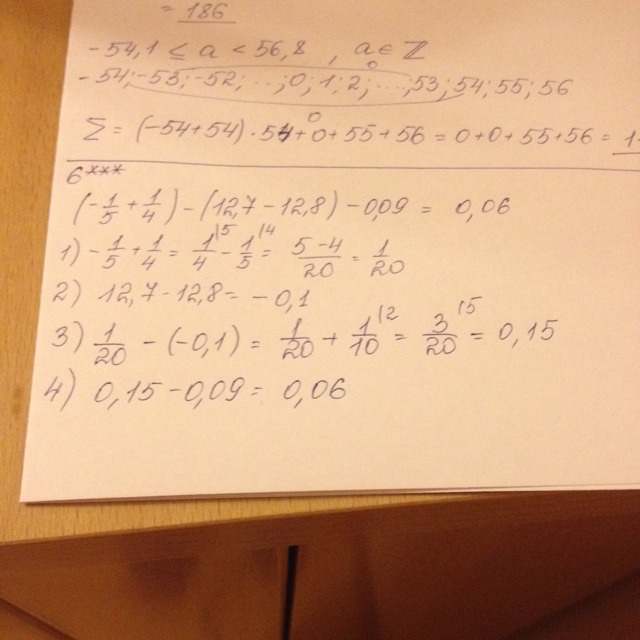 = 186
-54,1 ≤ a < 56,8 , a ∈ ℤ
-54; -53; -52; ...; 0; 1; 2; ..., 53; 54; 55; 56
0
Σ = (-54+54) · 54 + 0 + 55 + 56 = 0+0+55+56 =
0
6***
(-1/5 + 1/4) - (12,7 - 12,8) - 0,09 = 0,06
1) -1/5 + 1/4 = 1/4 |5 - 1/5 |4 = 5-4/20 = 1/20
2) 12,7 - 12,8 = -0,1
3) 1/20 - (-0,1) = 1/20 + 1/10 |2 = 3/20 |5 = 0,15
4) 0,15 - 0,09 = 0,06